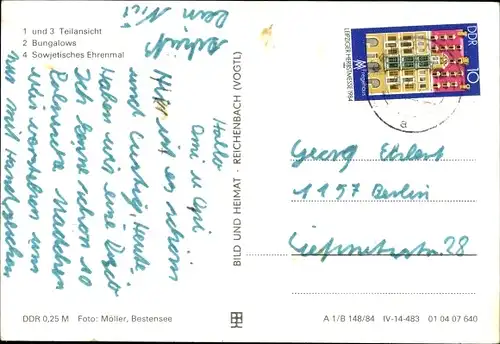 1 und 3 Teilansicht
2 Bungalows
4 Sowjetisches Ehrenmal
Hallo
Omi u Opi
Hier ist es schön
und lustig. Heute
Haben wir eine Disco
Ich kenne schon 10
Polnische Mädchen
wir verstehen uns
nur mit Handzeichen
Dein
BILD UND HEIMAT · REICHENBACH (VOGTL)
DDR 10
LEIPZIGER HERBSTMESSE 1984
Georg Ehlert
1157 Berlin
28
DDR 0,25 M Foto: Möller, Bestensee
A 1/B 148/84 IV-14-483 01 04 07 640